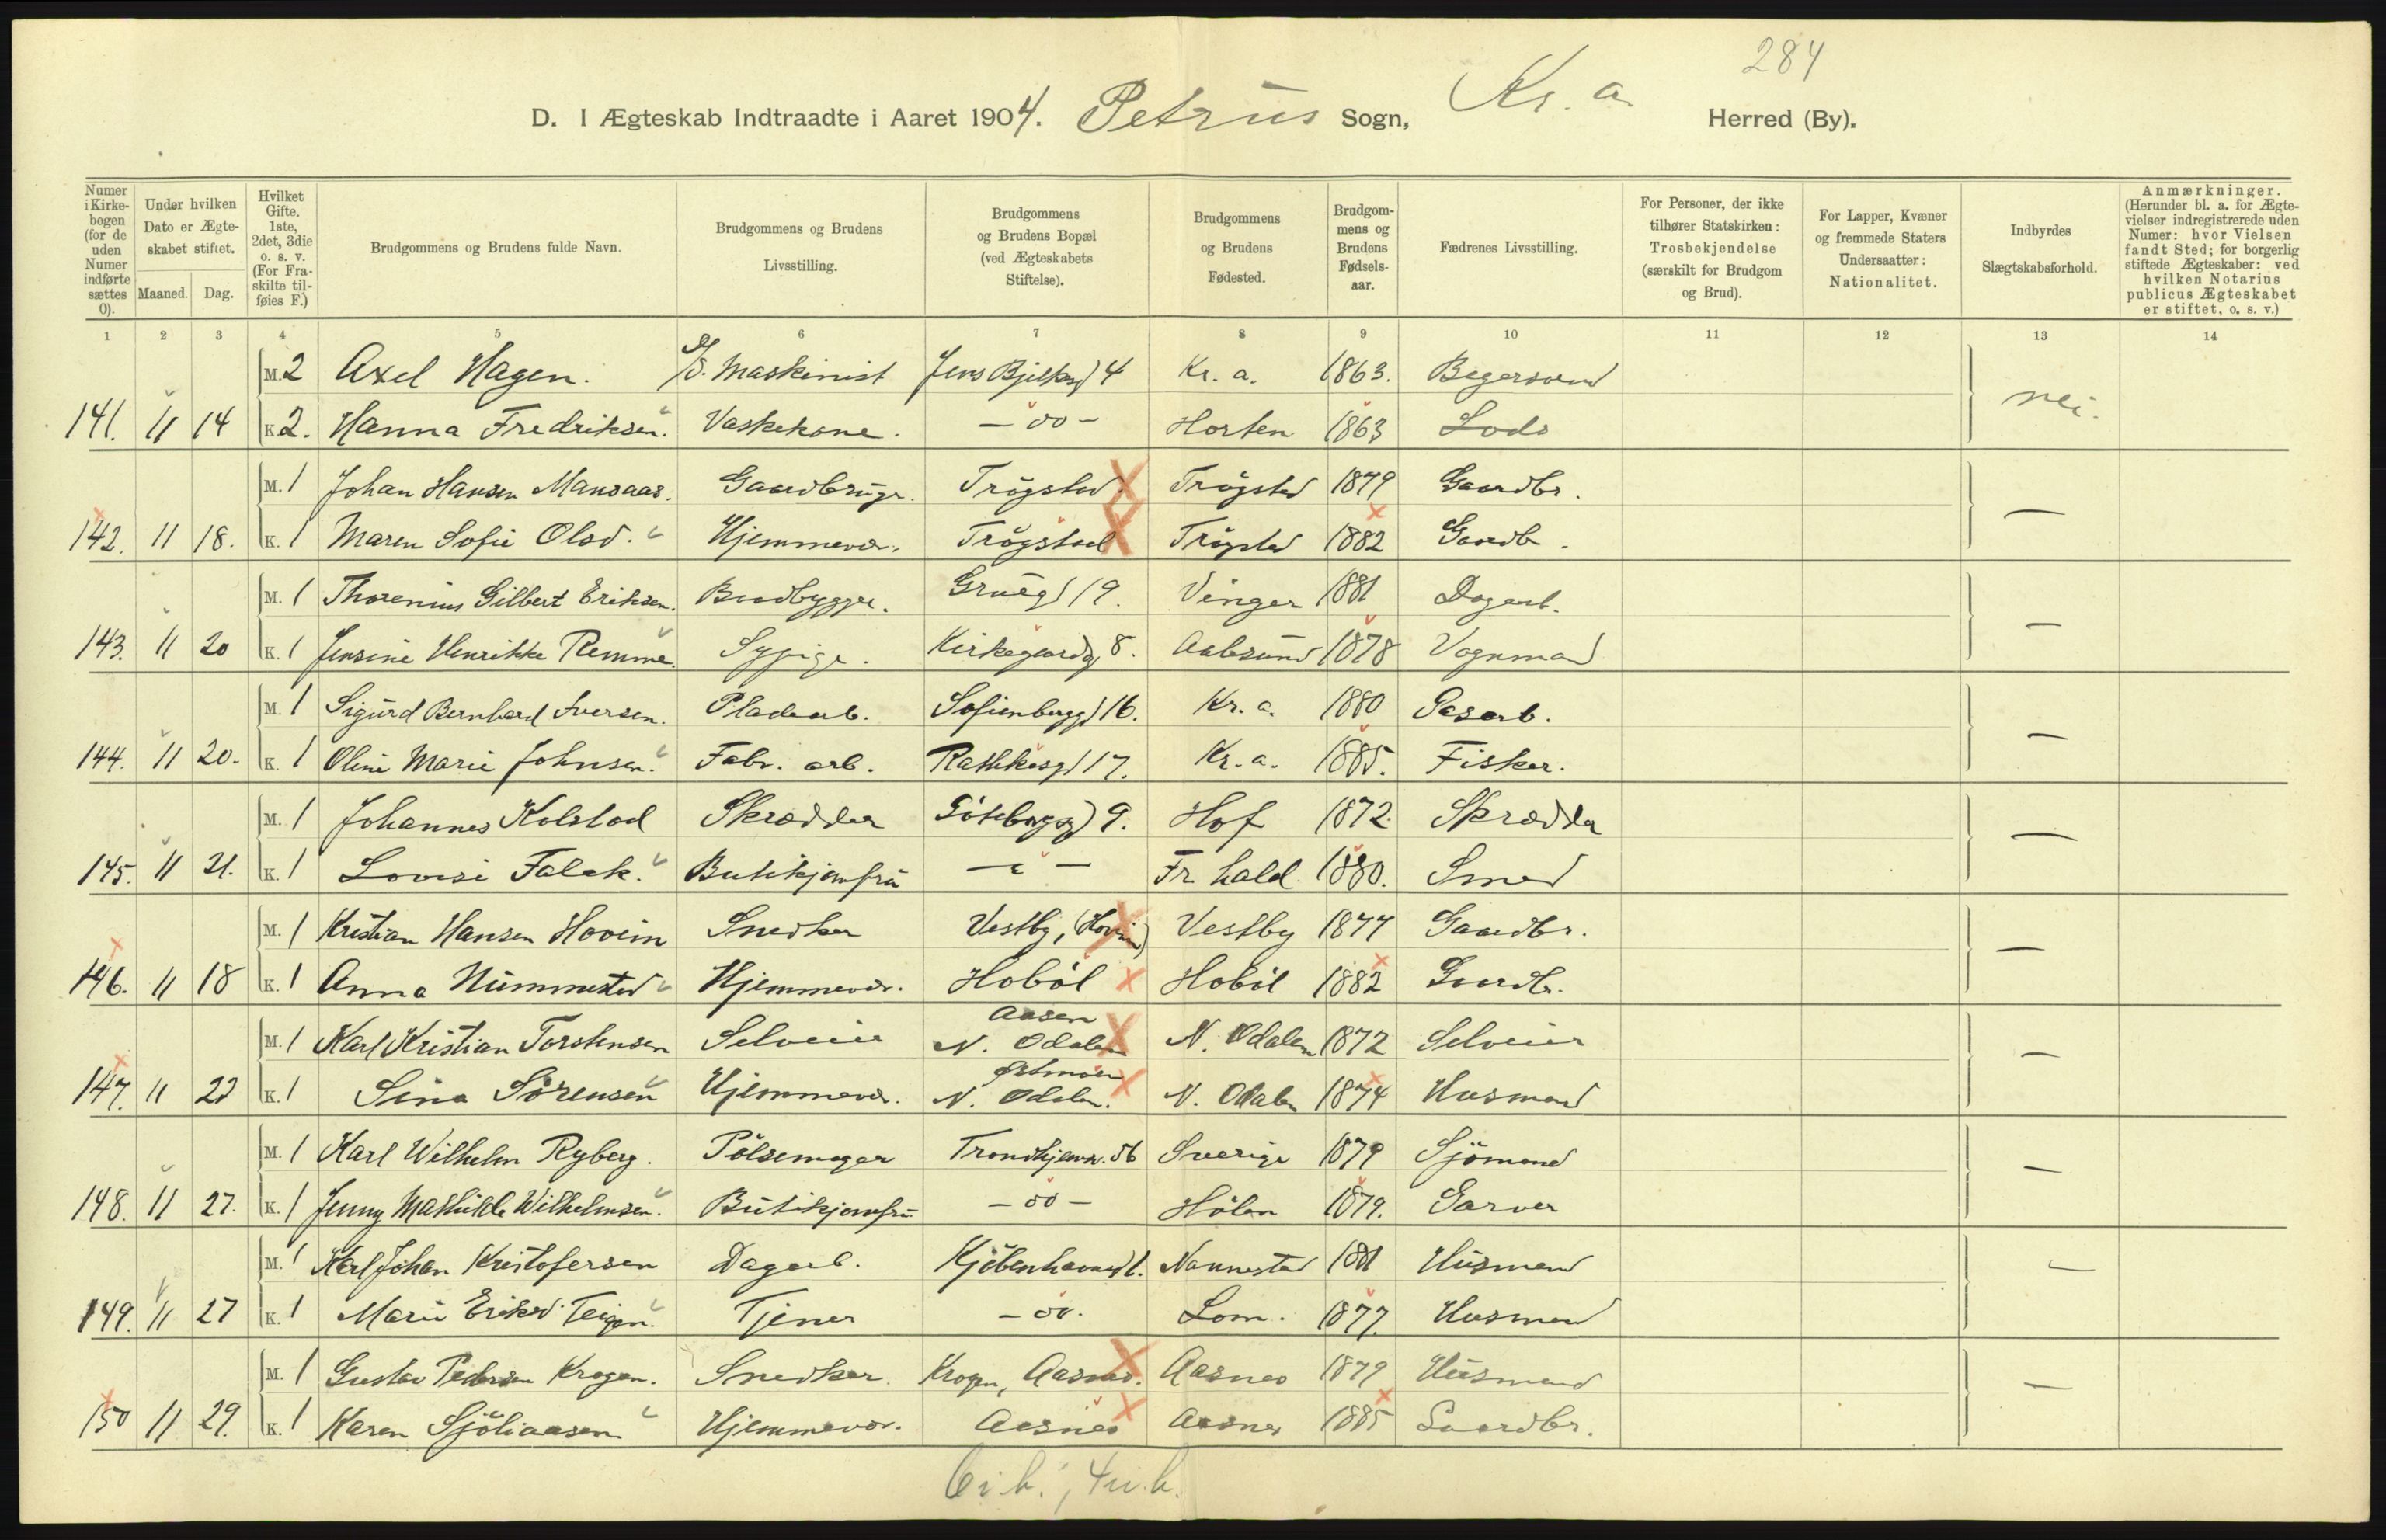 284
D. I Ægteskab Indtraadte i Aaret 1904. Petrus Sogn, Kr. a. Herred (By).
Numer i Kirke-bogen (for de uden Numer indførte sættes 0).
Under hvilken Dato er Ægte-skabet stiftet.
Maaned. Dag.
Hvilket Gifte. 1ste, 2det, 3die o. s. v. (For Fra-skilte til-føies F.)
Brudgommens og Brudens fulde Navn.
Brudgommens og Brudens Livsstilling.
Brudgommens og Brudens Bopæl (ved Ægteskabets Stiftelse).
Brudgommens og Brudens Fødested.
Brudgom-mens og Brudens Fødsels-aar.
Fædrenes Livsstilling.
For Personer, der ikke tilhører Statskirken: Trosbekjendelse (særskilt for Brudgom og Brud).
For Lapper, Kvæner og fremmede Staters Undersaatter: Nationalitet.
Indbyrdes Slægtskabsforhold.
Anmærkninger. (Herunder bl. a. for Ægte-vielser indregistrerede uden Numer: hvor Vielsen fandt Sted; for borgerlig stiftede Ægteskaber: ved hvilken Notarius publicus Ægteskabet er stiftet, o. s. v.)
1 2 3 4 5 6 7 8 9 10 11 12 13 14
M. 2 Axel Hagen. Maskinist 4 Kr. a. 1863.
141. 11 14 K. 2. Hanna Fredriksen. Vaskekone. — do — Horten 1863 Lods nei.
M. 1 Johan Hansen Mansaas. Gaardbruger. Trögstad. Trögstad 1879 Gaardbr.
142. 11 18. K. 1 Maren Sofie Olsd. Hjemmevær. Trögstad Trögstad 1882 Gaardb. —
M. 1 Thorenius Gilbert Eriksen. Baadbygger. Grüeg 19. Vinger 1881 Dagarb.
143. 11 20 K. 1 Jensine Henrikke Remme. Sypige. Kirkegaardsg 8. Aalesund 1878 Vognmand —
M. 1 Sigurd Bernhard Iversen. Pladearb. Sofienbergg 16. Kr. a. 1880 Gasarb.
144. 11 20. K. 1 Oline Marie Johnsen. Fabr. arb. Rathkesg 17. Kr. a. 1885. Fisker. —
M. 1 Johannes Kolstad Skrædder Göteborgsg 9. Hof 1872. Skrædder
145. 11 21. K. 1 Lovise Falck. Butikjomfru — " — Fr. hald 1880. Smed —
M. 1 Kristian Hansen Hovin Snedker Vestby, (Hovin) Vestby 1877 Gaardbr.
146. 11 18 K. 1 Anna Nümmestad Hjemmevær. Hoböl Hoböl 1882 Gaardb. —
M. 1 Karl Kristian Torstensen Selveier Aasen N. Odalen N. Odalen 1872 Selveier
147. 11 22 K. 1 Sina Sörensen Hjemmevær. N. Odalen. N. Odalen 1874 Husmand —
M. 1 Karl Wilhelm Ryberg. Pölsemager Trondhjemsv. 56 Sverige 1879 Sjömand
148. 11 27. K. 1 Jenny Mathilde Wilhelmsen. Butikjomfru — do — Hölen 1879. Garver —
M. 1 Karl Johan Kristofersen Dagarb. Kjöbenhavnsg 1. Nannestad 1881 Husmand
149. 11 27 K. 1 Marie Eriksd. Teigen. Tjener — do. Lom. 1877. Husmand —
M. 1 Gustav Pedersen Krogen. Snedker. Krogen, Aasnes. Aasnes 1879 Husmand
150 11 29. K. 1 Karen Sjöliaasen Hjemmevær. Aasnes Aasnes 1885 Gaardbr. —
6 i. b., 4 u. b.